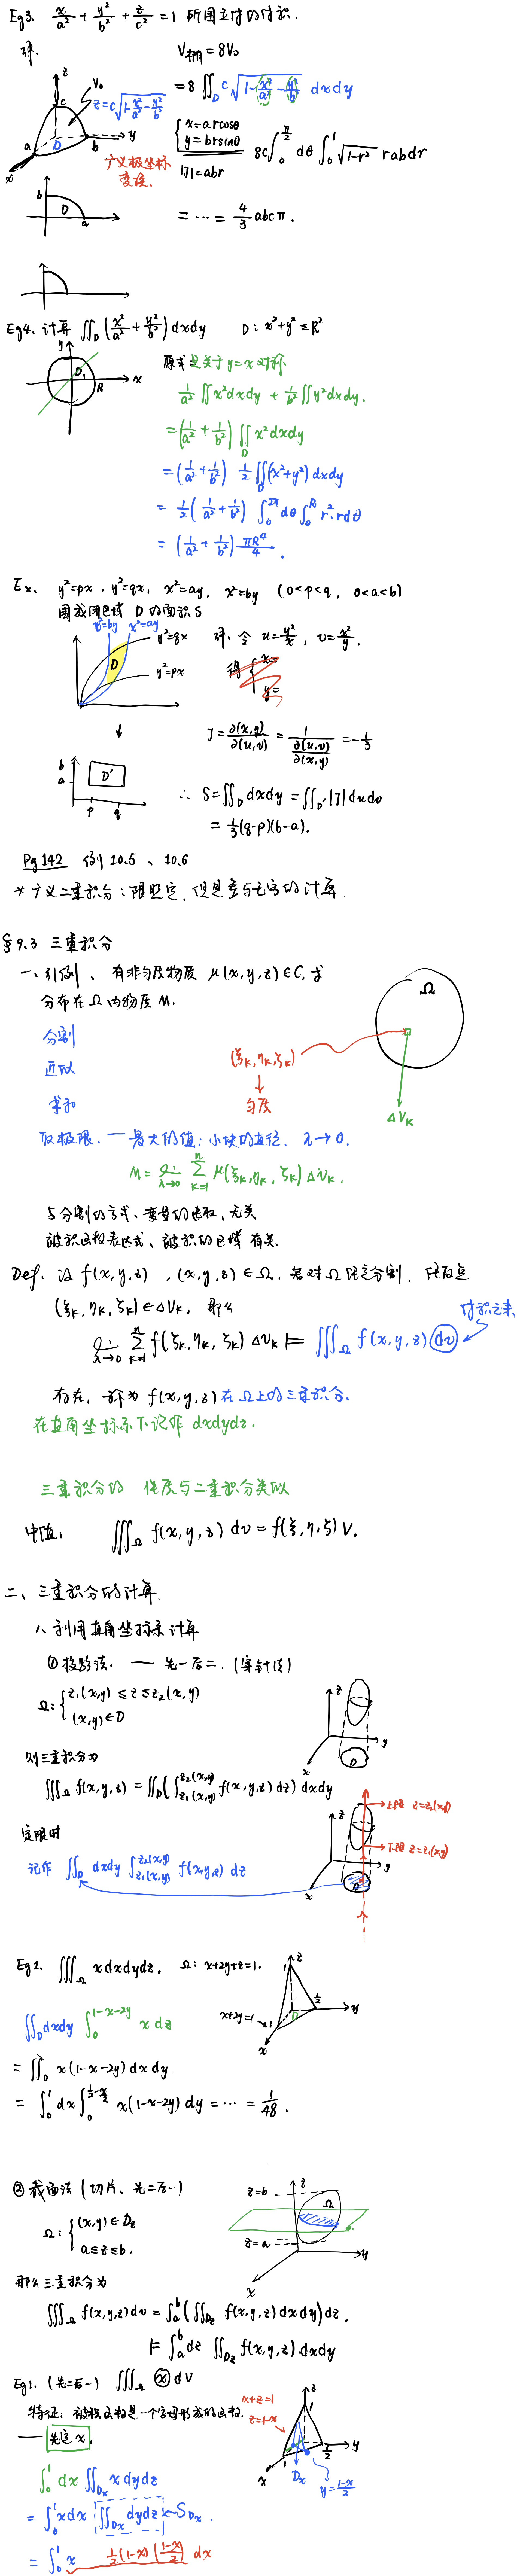 Eg3. x/a² + y²/b² + z/c² = 1 所围立体的体积.
解.
V椭 = 8V₀
= 8 ∬_D c√(1-x²/a²-y²/b²) dxdy
z = c√(1-x²/a²-y²/b²)
V₀
D
{ x = a r cosθ
y = b r sinθ
|J| = abr
8c ∫₀^{π/2} dθ ∫₀¹ √(1-r²) rab dr
广义极坐标
变换.
= ⋯ = 4/3 abcπ.
Eg4. 计算 ∬_D (x²/a² + y²/b²) dxdy D: x²+y² ≤ R²
原式 是关于 y=x 对称
1/a² ∬ x²dxdy + 1/b² ∬ y²dxdy.
= (1/a² + 1/b²) ∬_D x²dxdy
= (1/a² + 1/b²) 1/2 ∬_D (x²+y²) dxdy
= 1/2 (1/a² + 1/b²) ∫₀^{2π} dθ ∫₀^R r²·r dθ
= (1/a² + 1/b²) πR⁴/4.
Ex. y²=px, y²=qx, x²=ay, x²=by (0<p<q, 0<a<b)
围成闭区域 D 的面积 S
x²=by x²=ay
y²=qx
y²=px
D
解. 令 u = y²/x, v = x²/y.
得 { x=
y=
J = ∂(x,y)/∂(u,v) = 1/(∂(u,v)/∂(x,y)) = -1/3
D′
∴ S = ∬_D dxdy = ∬_D′ |J| dudv
= 1/3 (q-p)(b-a).
Pg 142 例 10.5、10.6
* 广义二重积分:
§9.3 三重积分
一、引例、有非匀质物质 μ(x,y,z)∈C, 求
分布在 Ω 内物质 M.
Ω
分割
近似
求和
(ξₖ, ηₖ, ζₖ)
↓
匀质
ΔVₖ
取极限. — 最大的值: 小块的直径. λ→0.
M = lim_{λ→0} Σ_{k=1}^n μ(ξₖ, ηₖ, ζₖ) ΔVₖ.
与分割的方式、变量的选取、无关
被积函数表达式、被积的区域 有关.
Def. 设 f(x,y,z), (x,y,z)∈Ω, 若对 Ω 任意分割, 任取点
(ξₖ, ηₖ, ζₖ)∈ΔVₖ, 那么
体积元素
lim_{λ→0} Σ_{k=1}^n f(ξₖ, ηₖ, ζₖ) ΔVₖ |= ∭_Ω f(x,y,z) dv
存在, 称为 f(x,y,z) 在 Ω 上的三重积分.
在直角坐标系下记作 dxdydz.
三重积分的 性质与二重积分类似
中值: ∭_Ω f(x,y,z) dv = f(ξ,η,ζ) V.
二、三重积分的计算.
1、利用直角坐标系计算
① 投影法. — 先一后二. (穿针法)
Ω: { z₁(x,y) ≤ z ≤ z₂(x,y)
(x,y)∈D
则三重积分为
∭_Ω f(x,y,z) = ∬_D (∫_{z₁(x,y)}^{z₂(x,y)} f(x,y,z) dz) dxdy
上限 z=z₂(x,y)
下限 z=z₁(x,y)
定限时
记作 ∬_D dxdy ∫_{z₁(x,y)}^{z₂(x,y)} f(x,y,z) dz
Eg1. ∭_Ω x dxdydz, Ω: x+2y+z=1.
x+2y=1
∬_D dxdy ∫₀^{1-x-2y} x dz
= ∬_D x(1-x-2y) dxdy
= ∫₀¹ dx ∫₀^{1/2-x/2} x(1-x-2y) dy = ⋯ = 1/48.
② 截面法 (切片、先二后一)
z=b
Ω
z=a
Ω: { (x,y)∈D_z
a≤z≤b.
那么三重积分为
∭_Ω f(x,y,z) dv = ∫_a^b (∬_{D_z} f(x,y,z) dxdy) dz.
|= ∫_a^b dz ∬_{D_z} f(x,y,z) dxdy
Eg1. (先二后一) ∭_Ω x dV
特征: 被积函数是一个字母形成的函数.
x+z=1
z=1-x
— 先定 x.
D_x
y = (1-x)/2
∫₀¹ dx ∬_{D_x} x dydz
= ∫₀¹ x dx ∬_{D_x} dydz ← S_{D_x}.
= ∫₀¹ x 1/2 (1-x) ((1-x)/2) dx